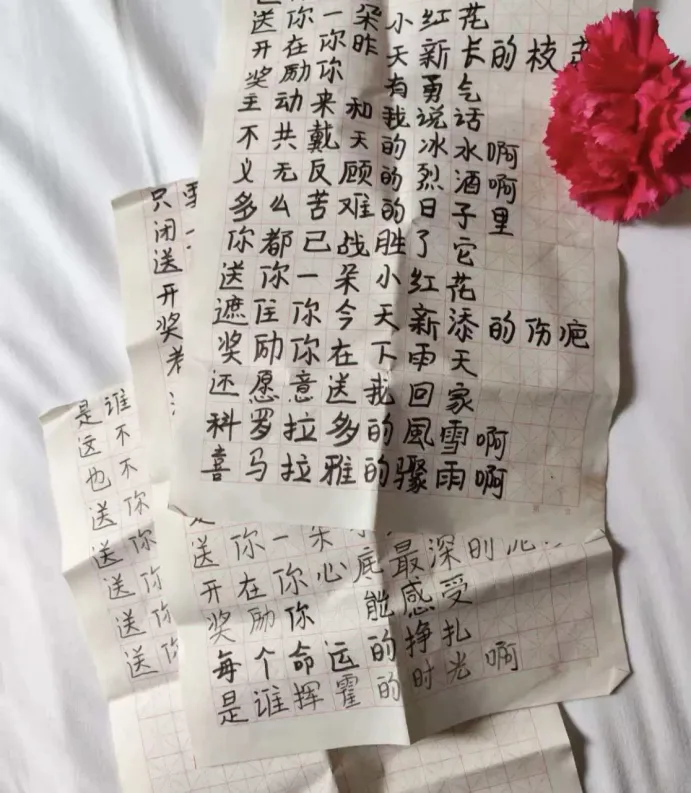 送你一朵小红花
开在你昨天新长的枝
奖励你 有勇气
主动来和我说话
不共戴天的冰水啊
义无反顾的烈酒啊
多么苦难的日子里
你都已战胜了它
送你一朵小红花
遮住你今天新添的伤疤
奖励你在下雨天
还愿意送我回家
科罗拉多的風雪啊
喜马拉雅的骤雨啊
只
闭
送
开
奖
送你一朵
开在你心底最深
奖励你 能感受
每个命运的挣扎
是谁挥霍的时光啊
是谁
这不
也不
送你
送你
送你
送你
送你